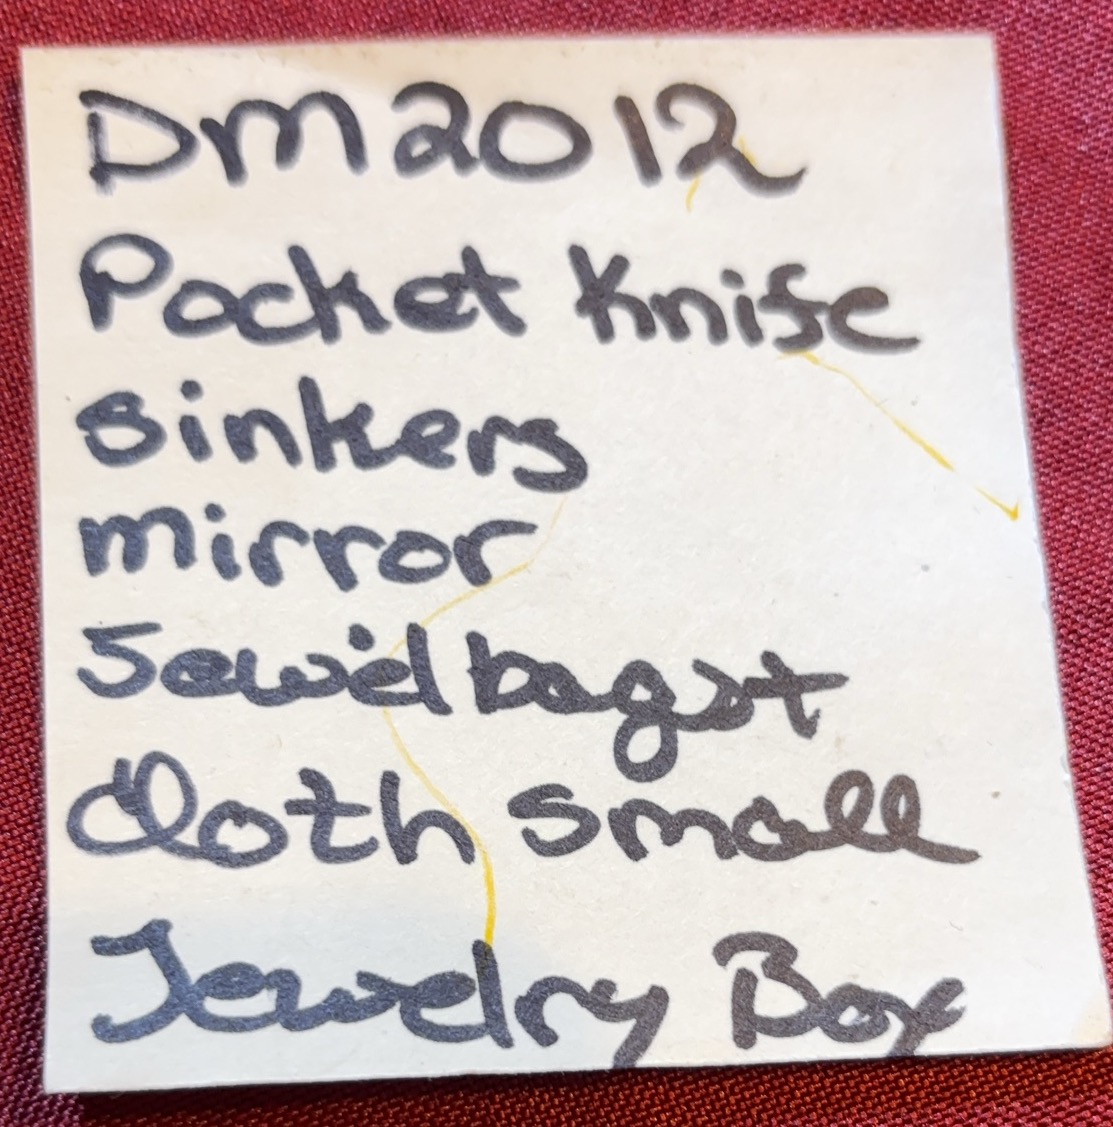 DM2012
Pocket Knife
Sinkers
mirror
bag
Cloth Small
Jewelry Box